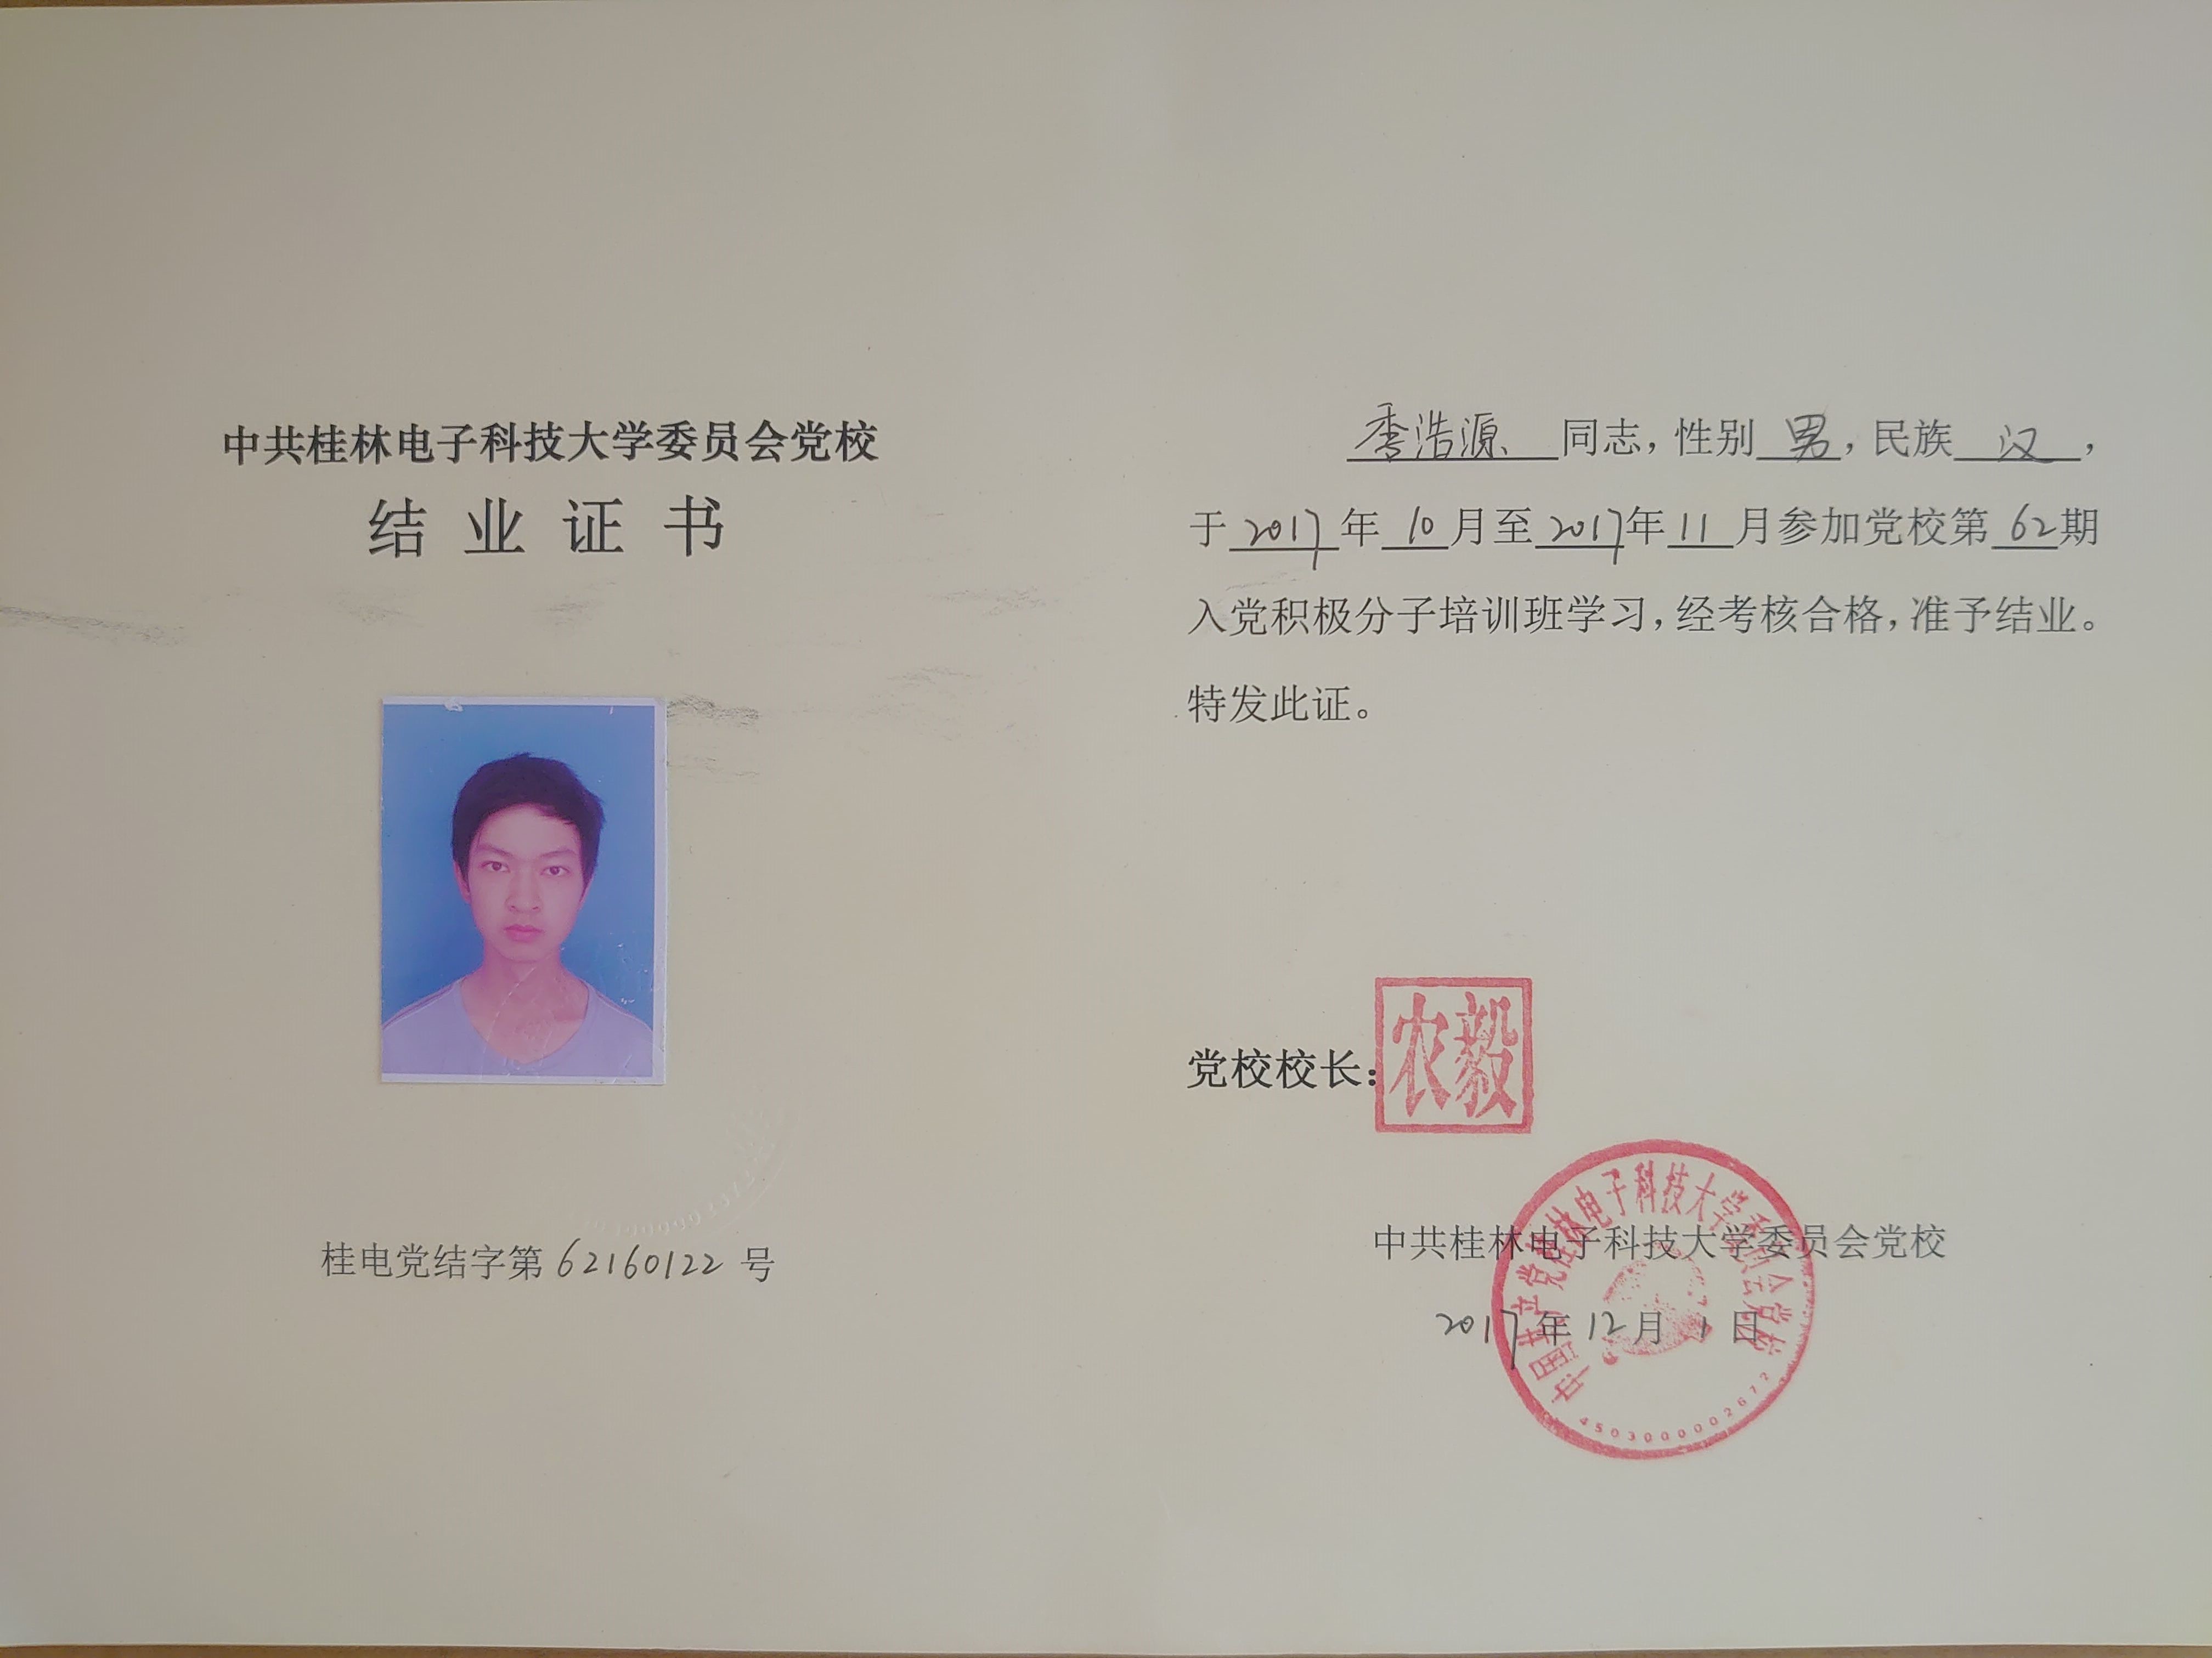 中共桂林电子科技大学委员会党校
结业证书
桂电党结字第 62160122 号
季浩源 同志，性别 男，民族 汉，
于 2017 年 10 月至 2017 年 11 月参加党校第 62 期
入党积极分子培训班学习，经考核合格，准予结业。
特发此证。
党校校长：
农毅
中共桂林电子科技大学委员会党校
2017 年 12 月 1 日
中国共产党桂林电子科技大学委员会党校
4503000002672